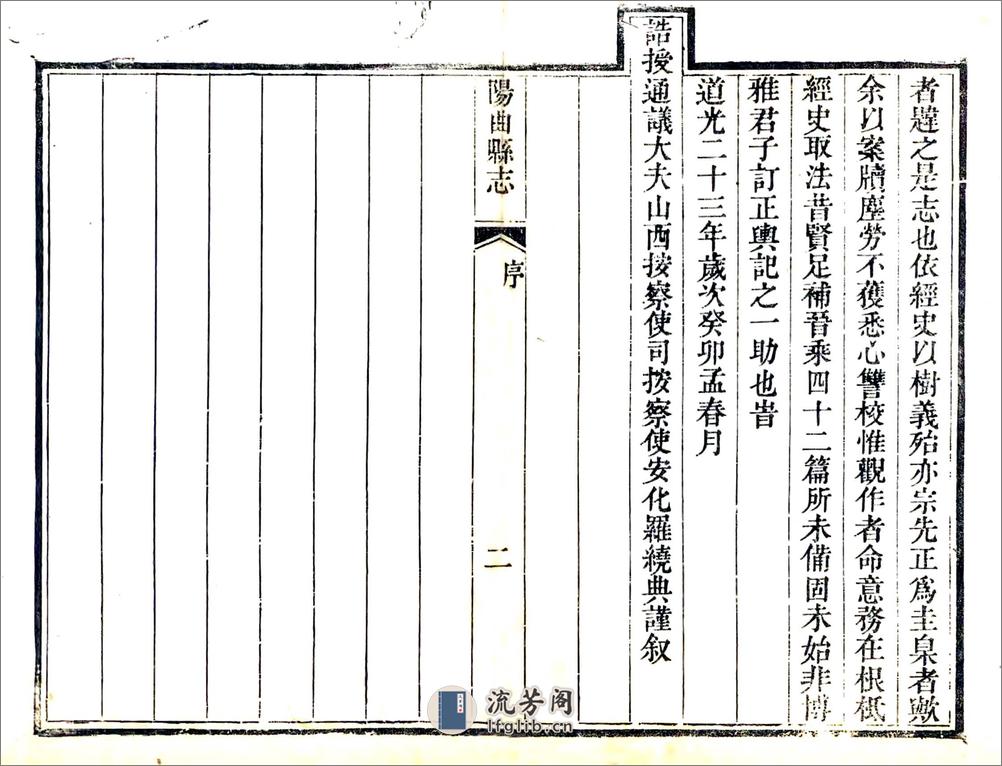 者韙之是志也依經史以樹義殆亦宗先正爲圭臬者歟
余以案牘塵勞不獲悉心讐校惟觀作者命意務在根柢
經史取法昔賢足補晉乘四十二篇所未備固未始非博
雅君子訂正輿記之一助也旹
道光二十三年歲次癸卯孟春月
誥授通議大夫山西按察使司按察使安化羅繞典謹叙
陽曲縣志
序
二
流芳阁
lfglib.cn